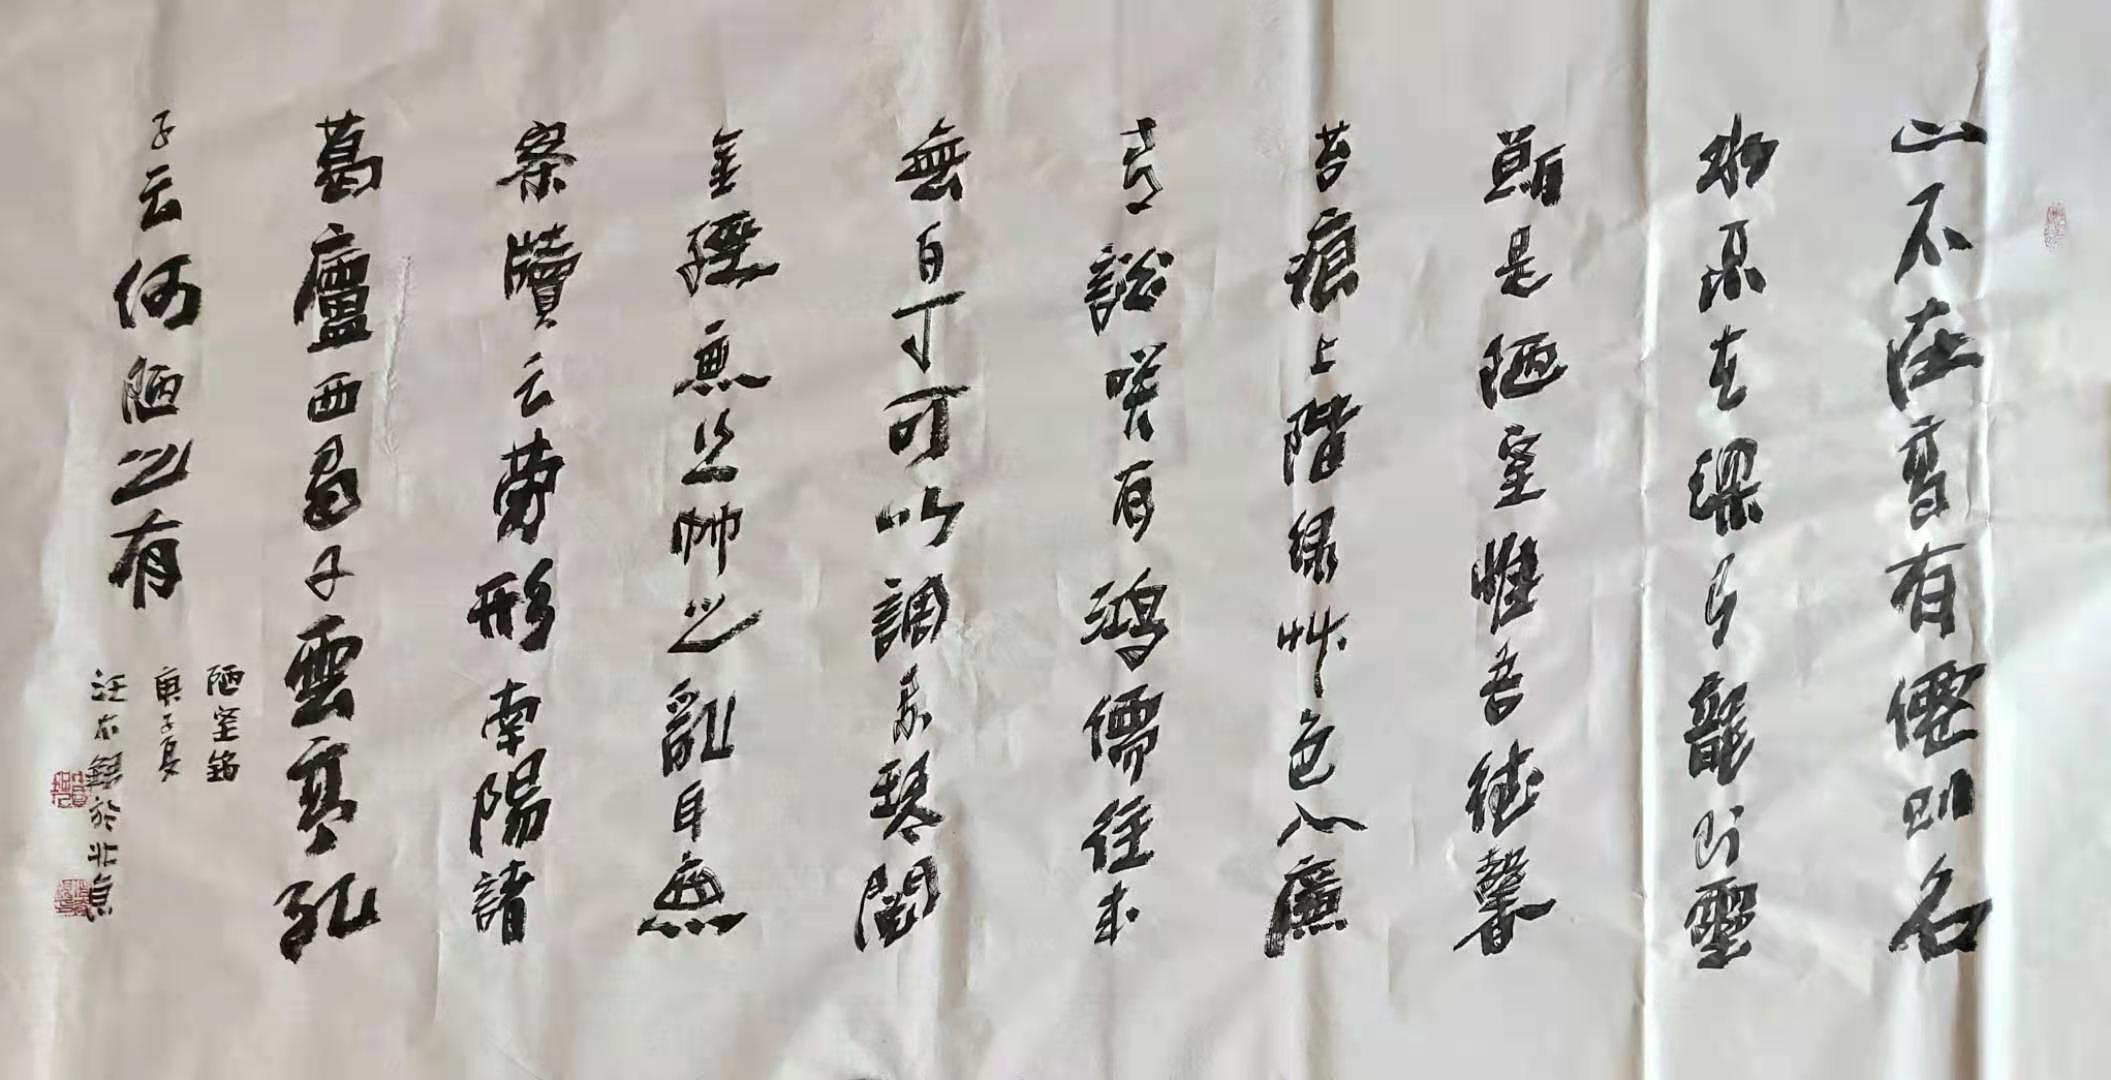 山不在高有僊則名
水不在深有龍則靈
斯是陋室惟吾德馨
苔痕上階緑艸色入簾
青談咲有鴻儒往来
無白丁可以調素琴閱
金經無絲竹之亂耳無
案牘之勞形南陽諸
葛廬西蜀子雲亭孔
子云何陋之有
陋室銘
庚子夏
汪於北京